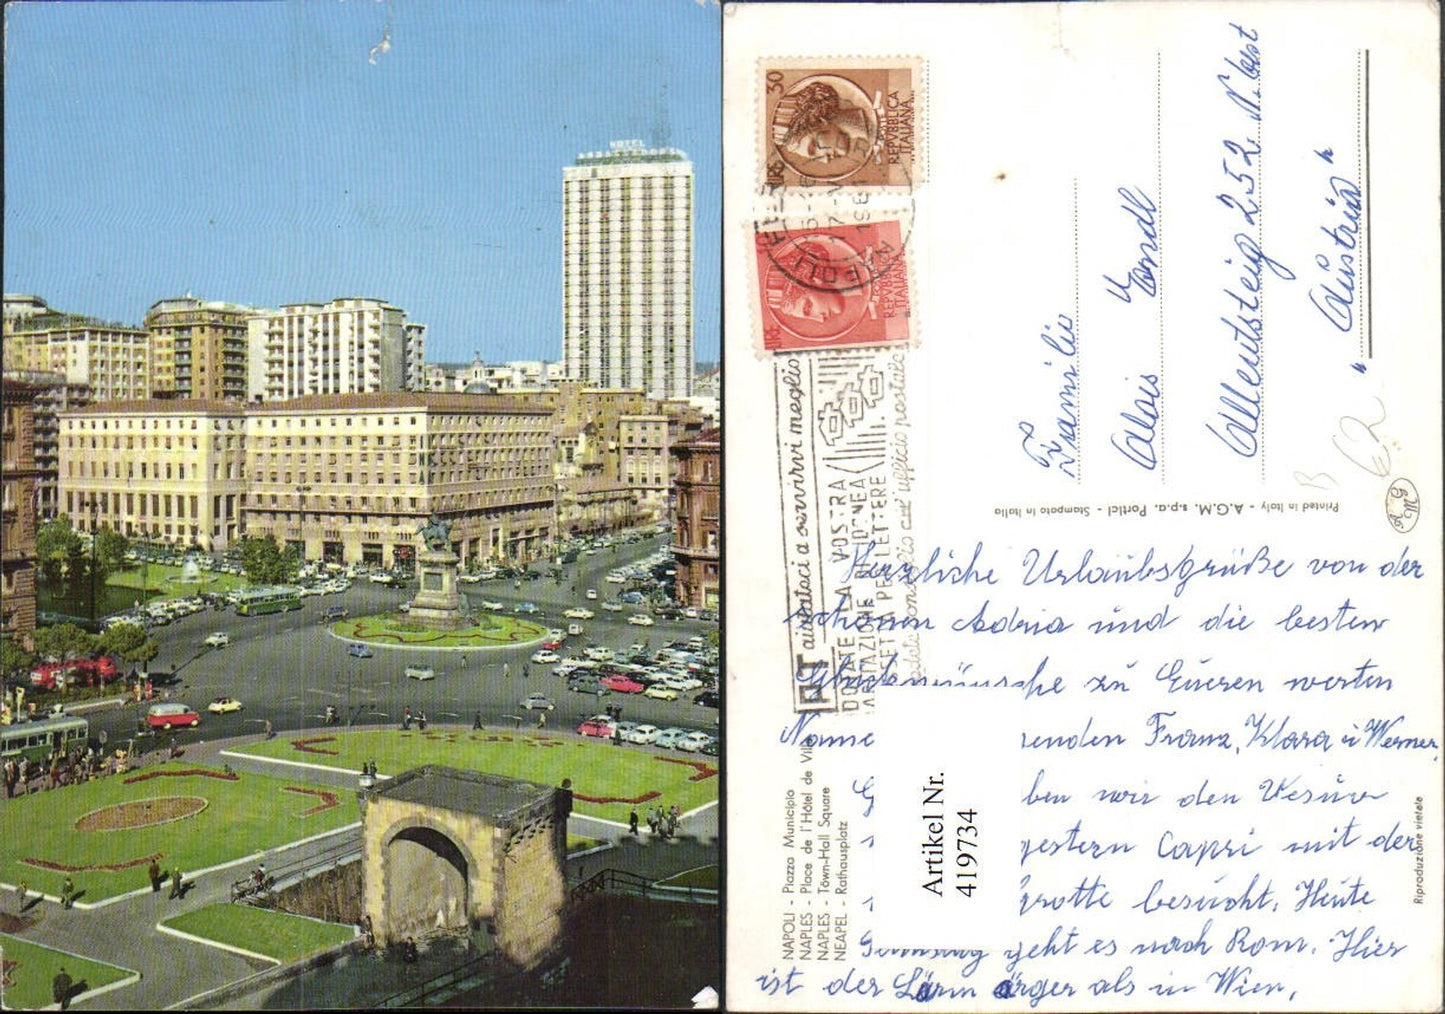 HOTEL
AMBASSADORS
30
LIRE
REPVBBLICA
ITALIANA
POSTE
NAPOLI
LIRE
REPVBBLICA
ITALIANA
aiutateci a servirvi meglio
DOTATE LA VOSTRA
ABITAZIONE DI IDONEA
CASSETTA PER LETTERE
ufficio postale
Familie
Alois Endl
Allentsteig 252 N.Öst
"Austria"
62
B
Printed in Italy - A.G.M. s.p.a. Portici - Stampato in Italia
NAPOLI - Piazza Municipio
NAPLES - Place de l'Hôtel de Ville
NAPLES - Town-Hall Square
NEAPEL - Rathausplatz
Riproduzione vietata
Artikel Nr.
419734
Herzliche Urlaubsgrüße von der
schönen Adria und die besten
Glückwünsche zu Eueren werten
Name enden Franz, Klara u Werner,
ben wir den Vesuv
gestern Capri mit der
Grotte besucht. Heute
Samstag geht es nach Rom. Hier
ist der Lärm ärger als in Wien.